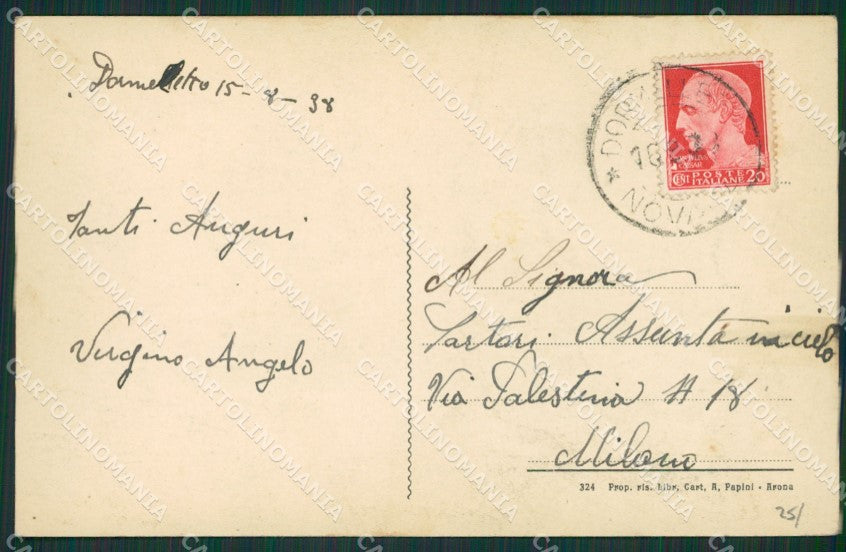 Dormelletto 15-8-38
Tanti Auguri
Virginio Angelo
JULIVS
CAESAR
CENT POSTE ITALIANE 20
NOV
Al Signora
Sartori Assunta in cielo
Via Palestrina N 18
Milano
324 Prop. ris. Libr. Cart. A. Papini - Arona
25/
CARTOLINOMANIA